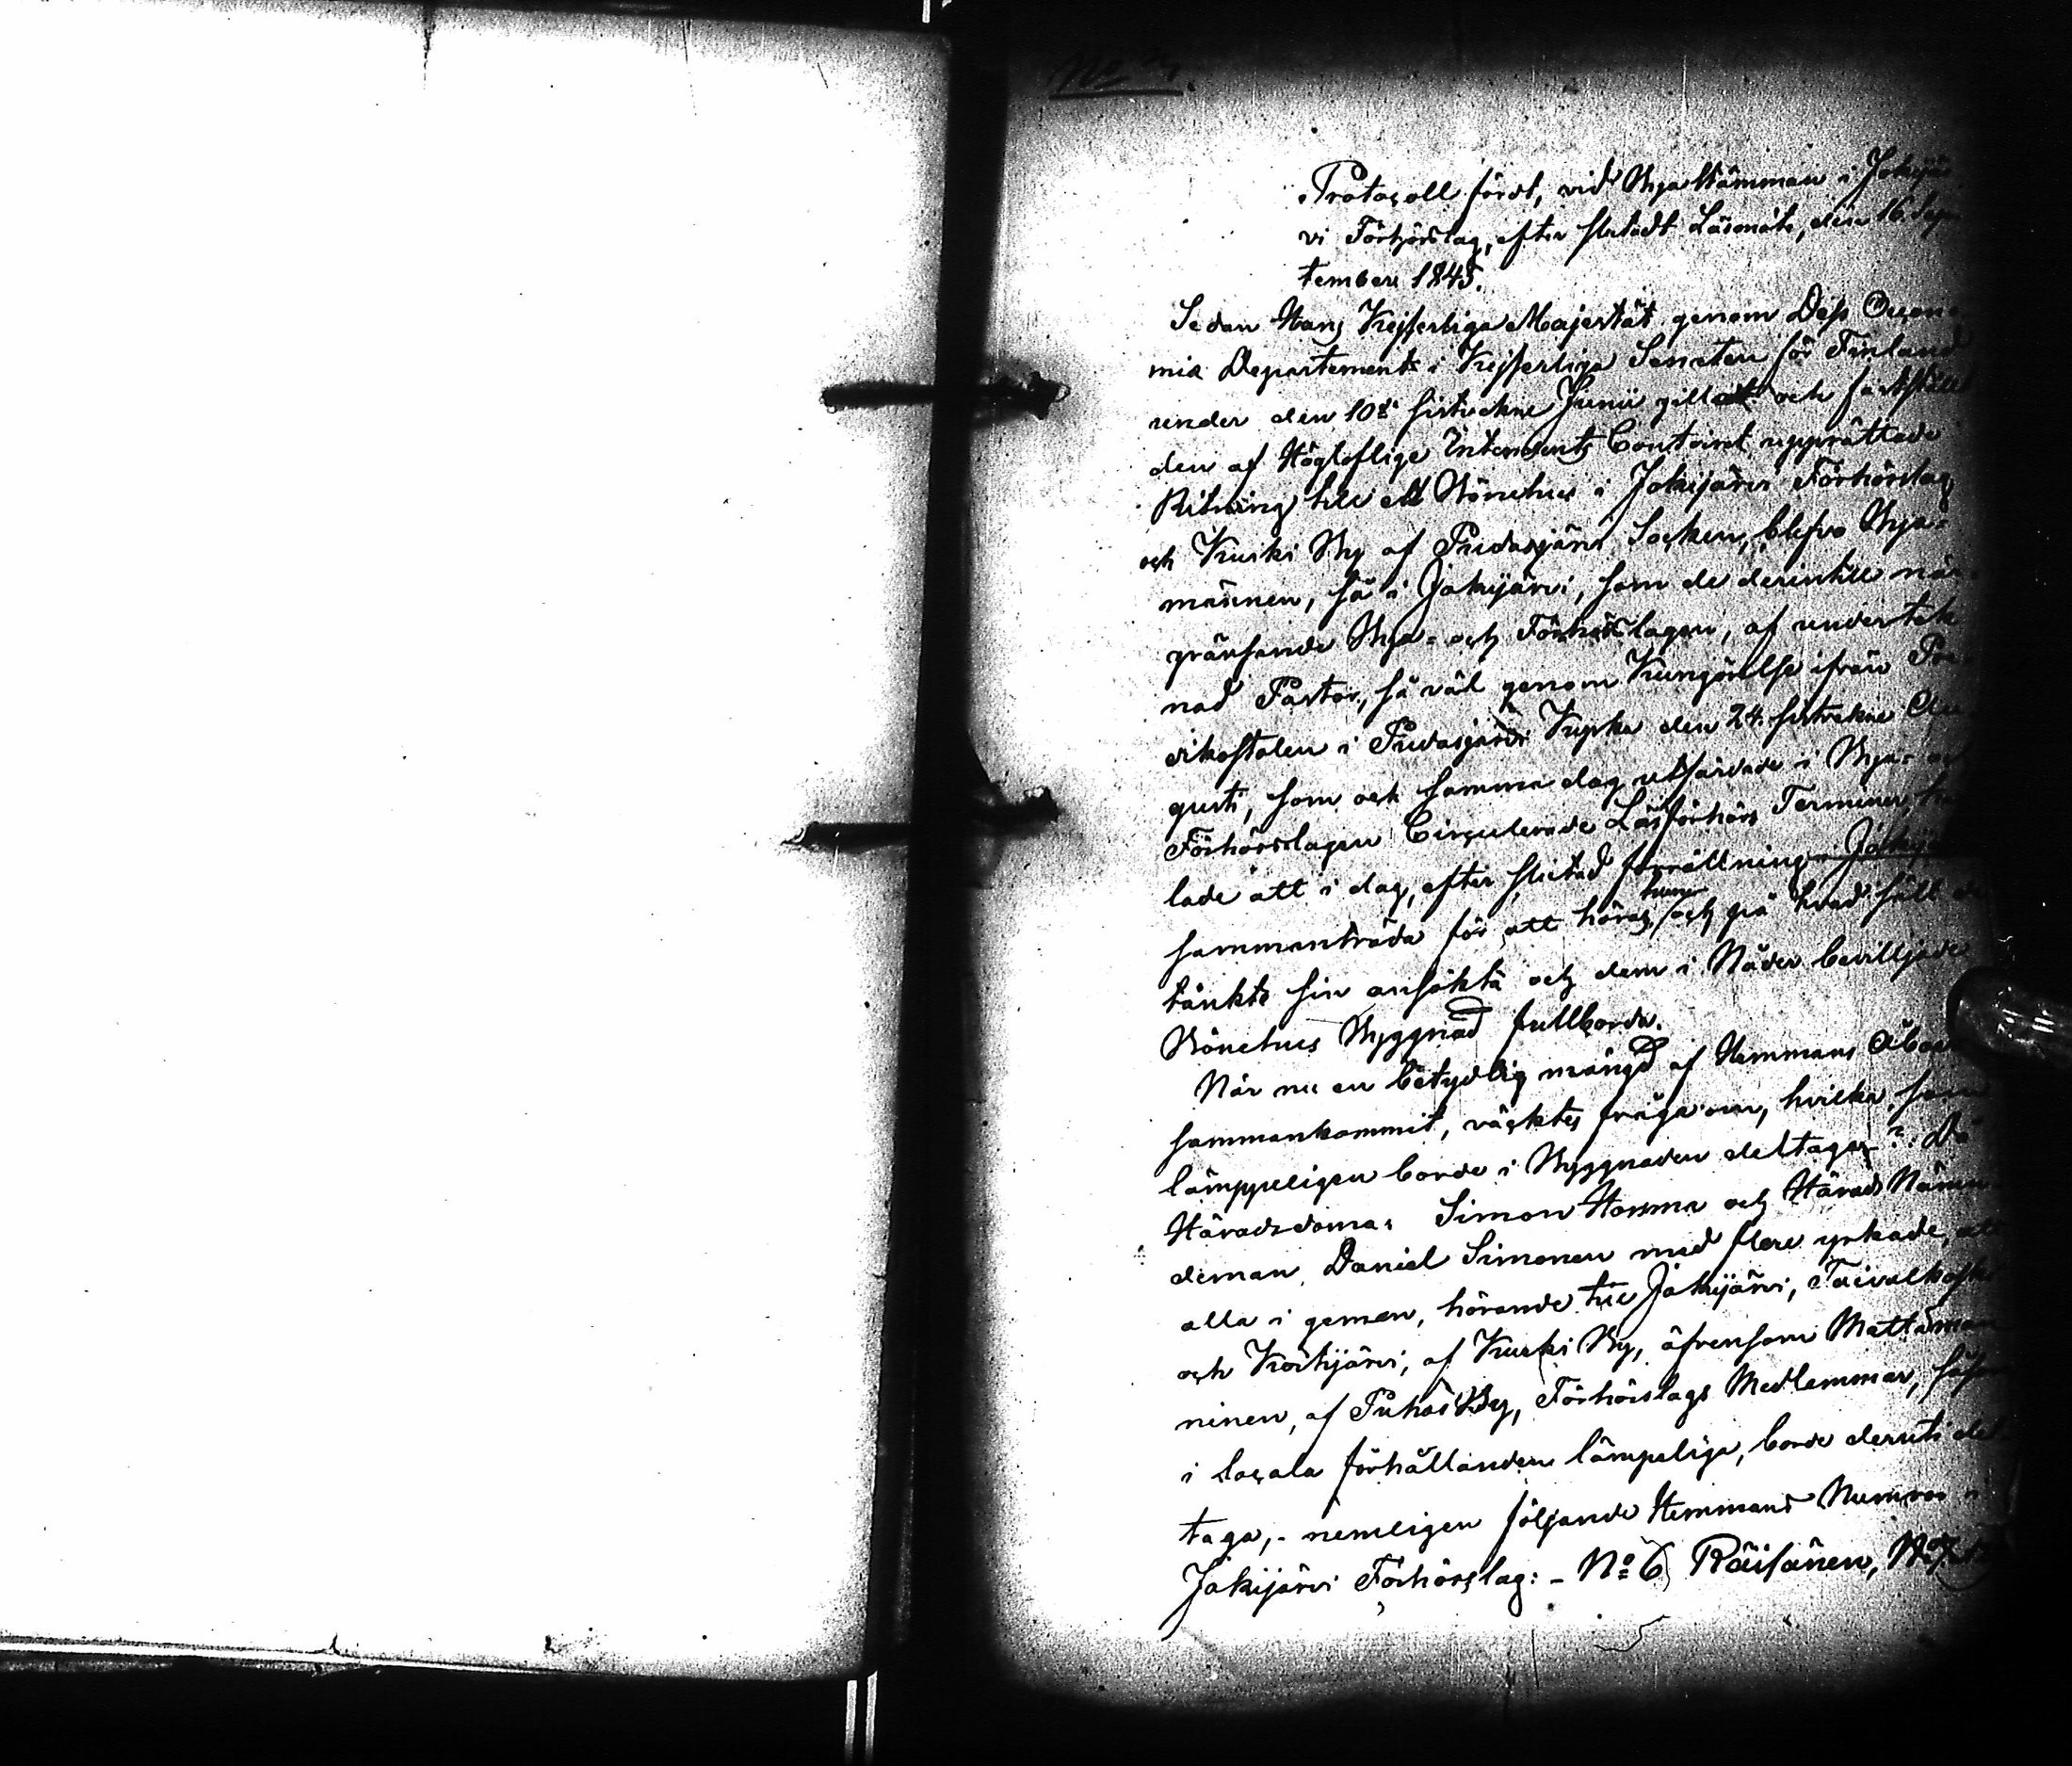 Protocoll fördt, vid Byastämman i Jokijär
vi Förhörslag, efter slutadt Läsmöte, den 16. Sep
tember 1845.
Sedan Hans Kejserliga Majestät genom Dess Oecono
mie Departement i Kejserliga Senaten för Finland
under den 10de sistvekne Junii gillat och fastställt
den af Högloflige Intendents Contoiret upprättade
Ritning till ett Bönehus i Jokijärvi Förhörslag
och Kurki By af Pudasjärvi Socken, blefvo Bya=
männen, så i Jokijärvi, som de derintill när
gränsande Bya= och Förhörslagen, af underteck
nad Pastor, så väl genom Kungörelse ifrån Pre
dikostolen i Pudasjärvi Kyrka den 24. sistvekne Au
gusti, som ock samma dag utfärdade i Bya= och
Förhörslagen Circulerade Läsförhörs Terminer,
lade att i dag, efter slutad förrättning i Jokijär
sammanträda för att höras, huru och på hvad sätt de
tänkte sin ansökta och dem i Nåder beviljade
Bönehus Byggnad fullborda.
När nu en betydlig mängd af Hemmans Åboer
sammankommit, väcktes fråga om, hvilka som
lämpeligen borde i Byggnaden deltaga?. Då
Häradsdoma: Simon Homma och Härads Nämn
deman, Daniel Simonen med flere yrkade, att
alla i gemen, hörande till Jokijärvi, Taivalkoski
och Kostijärvi, af Kurki By, äfvensom Mattänen
ninen, af Puhos By, Förhörslags Medlemmar, såsom
i locala förhållanden lämpeliga, borde deruti del
taga,- nemligen följande Hemmans Numror i
Jokijärvi Förhörslag: - No 6 Räisänen, No 7.